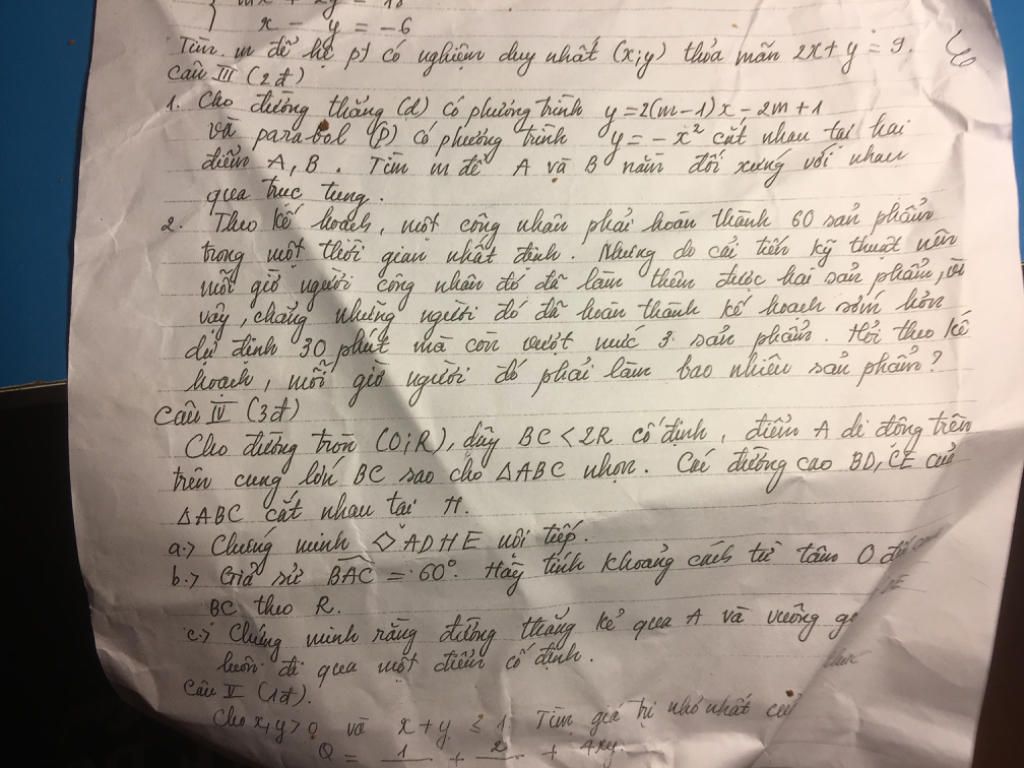 mx + 2y = 18
x - y = -6
Tìm m để hệ pt có nghiệm duy nhất (x;y) thỏa mãn 2x+y = 9.
Câu III (2đ)
1. Cho đường thẳng (d) có phương trình y=2(m-1)x - 2m+1
và parabol (P) có phương trình y = - x² cắt nhau tại hai
điểm A, B. Tìm m để A và B nằm đối xứng với nhau
qua trục tung.
2. Theo kế hoạch, một công nhân phải hoàn thành 60 sản phẩm
trong một thời gian nhất định. Nhưng do cải tiến kỹ thuật nên
mỗi giờ người công nhân đó đã làm thêm được hai sản phẩm, vì
vậy, chẳng những người đó đã hoàn thành kế hoạch sớm hơn
dự định 30 phút mà còn vượt mức 3 sản phẩm. Hỏi theo kế
hoạch, mỗi giờ người đó phải làm bao nhiêu sản phẩm?
Câu IV (3đ)
Cho đường tròn (O;R), dây BC < 2R cố định, điểm A di động trên
trên cung lớn BC sao cho ΔABC nhọn. Các đường cao BD, CE của
ΔABC cắt nhau tại H.
a.> Chứng minh ◇ADHE nội tiếp.
b.> Giả sử BAC = 60°. Hãy tính khoảng cách từ tâm O đến cạnh
BC theo R.
c.> Chứng minh rằng đường thẳng kẻ qua A và vuông DE
luôn đi qua một điểm cố định.
Câu V (1đ).
Cho x,y > 0 và x+y ≤ 1 Tìm giá trị nhỏ nhất của
Q = 1 + 2 + 4xy